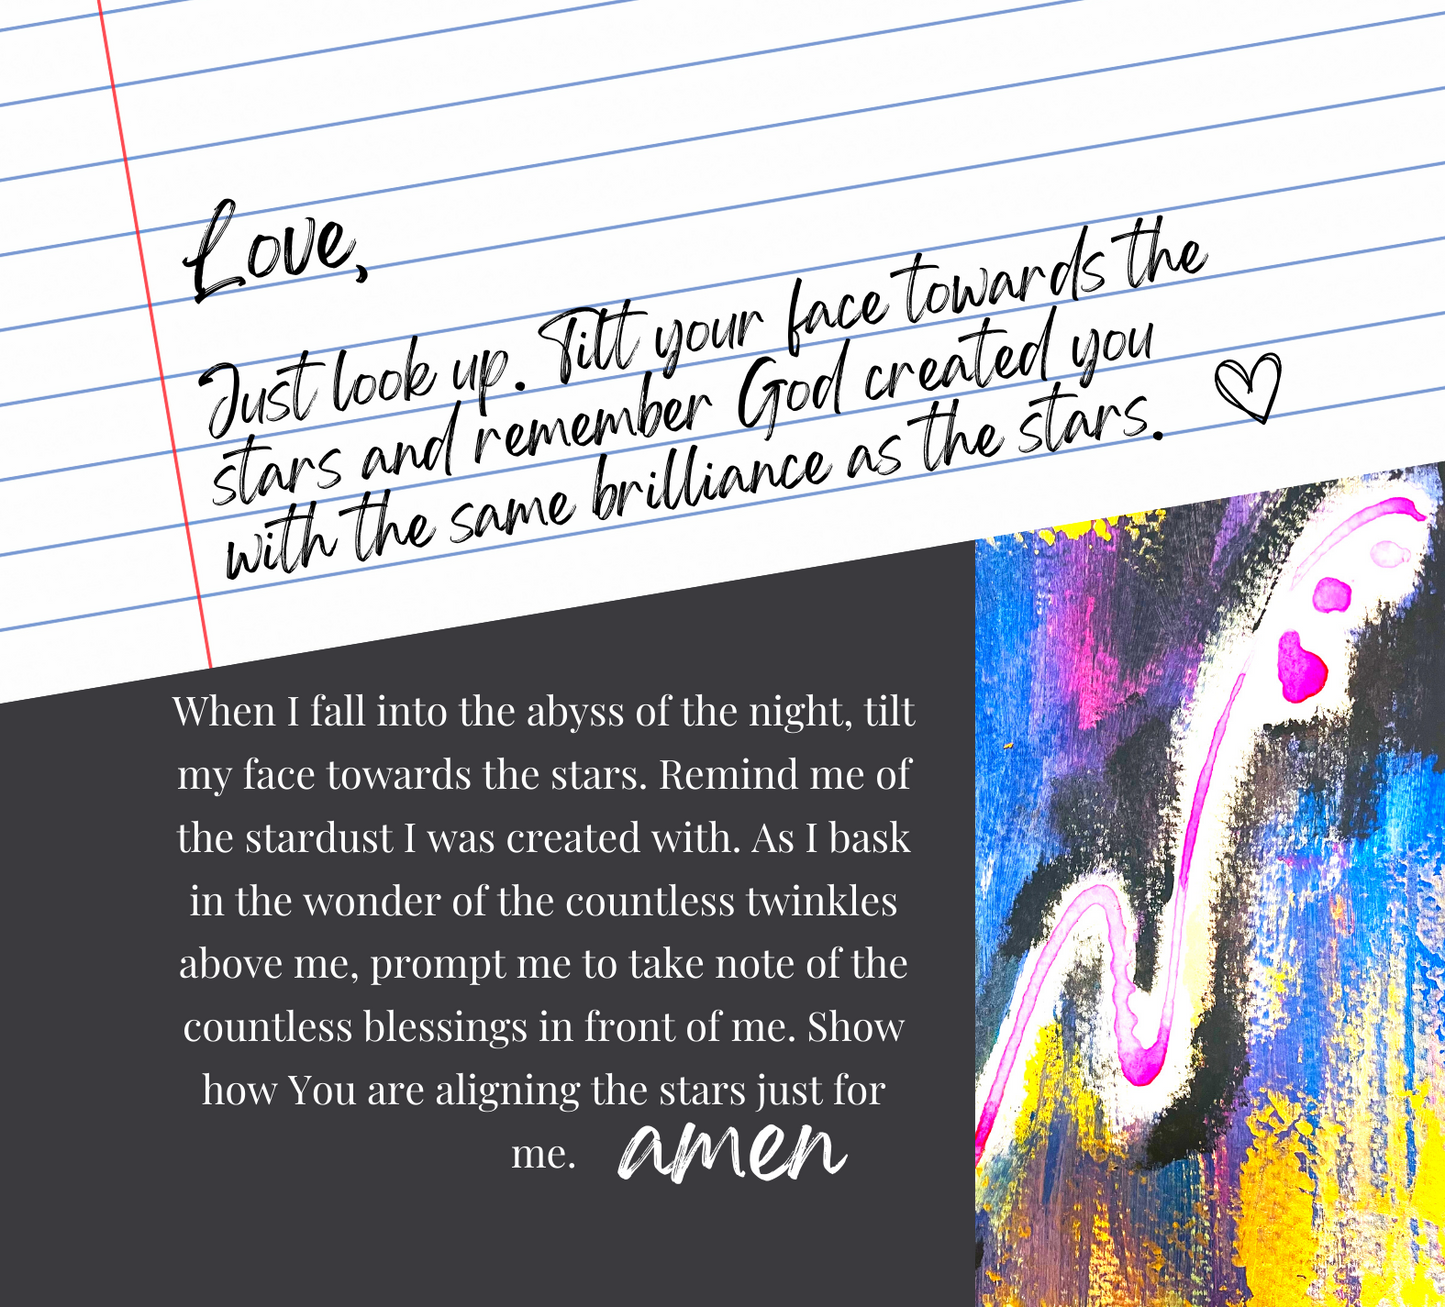 Love,
Just look up. Tilt your face towards the
stars and remember God created you
with the same brilliance as the stars.
When I fall into the abyss of the night, tilt
my face towards the stars. Remind me of
the stardust I was created with. As I bask
in the wonder of the countless twinkles
above me, prompt me to take note of the
countless blessings in front of me. Show
how You are aligning the stars just for
me. amen